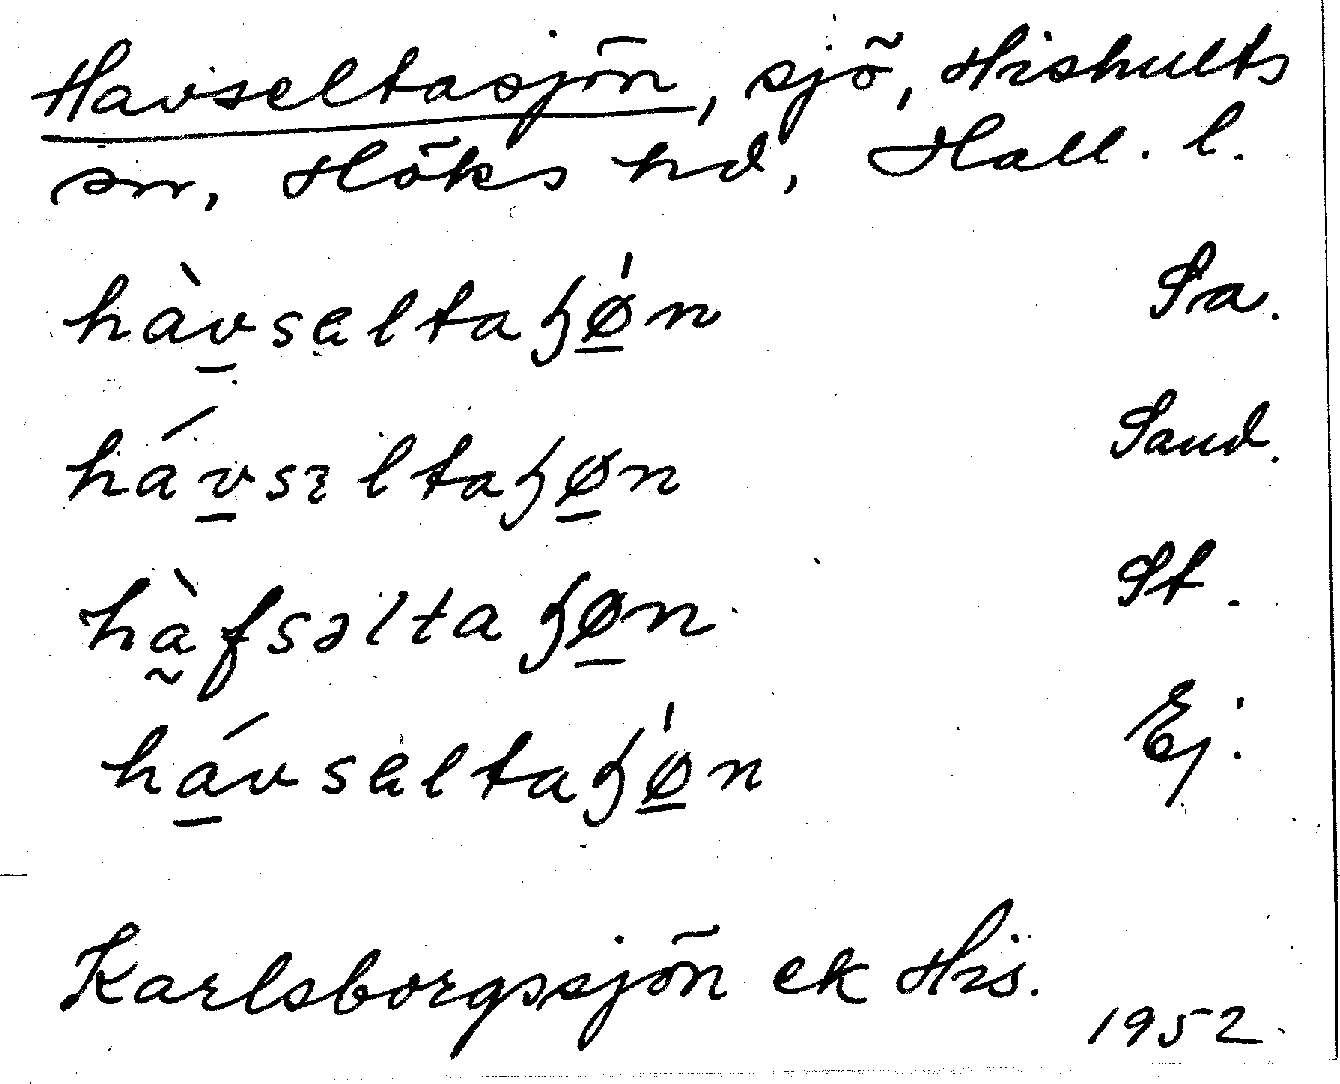 Havseltasjön, sjö, Hishults
sn, Höks hd, Hall. l.
hàvsaltaɧǿn Sa.
hávsɛltaɧøn Sand.
hàfsəltaɧøn St.
hávsaltaɧǿn Ej.
Karlsborgssjön ek His.
1952